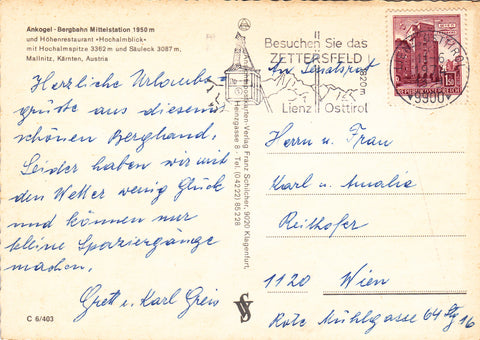 Ankogel - Bergbahn Mittelstation 1950 m
und Höhenrestaurant »Hochalmblick«
mit Hochalmspitze 3362 m und Säuleck 3087 m,
Mallnitz, Kärnten, Austria
Herzliche Urlaubs-
grüße aus diesem
schönen Bergland,
Leider haben wir mit
den Wetter wenig Glück
und können nur
kleine Spaziergänge
machen,
Grett u. Karl Greis
C 6/403
Postkarten-Verlag Franz Schilcher, 9020 Klagenfurt,
Heinzgasse 8 - Tel. (04222) 85 2 28
Besuchen Sie das
ZETTERSFELD
1820 m
Lienz Osttirol
OSTTIROL
9900
REPUBLIK ÖSTERREICH
An
Herrn u. Frau
Karl u. Amalia
Reithofer
1120 Wien
Rote Mühlgasse 64 Stg 16